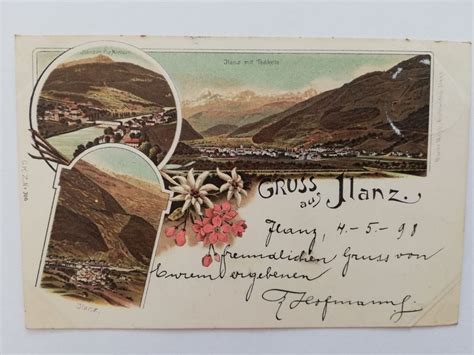 Ilanz mit Tödikette
GRUSS aus ILANZ.
Ilanz, 4-5-98
freundlichen Gruss von
Eurem ergebenen
Hofmann
Ilanz.